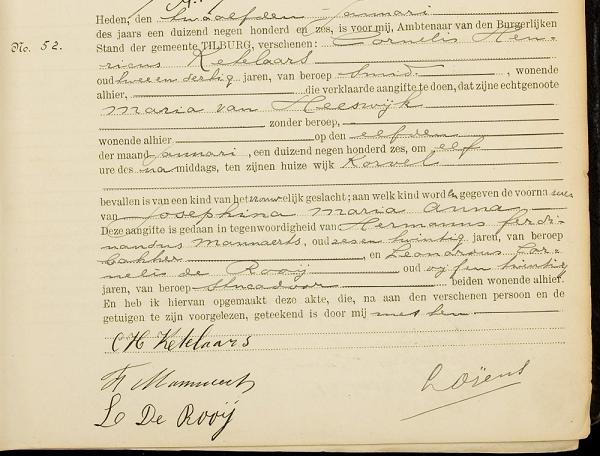 Heden, den twaalfden Januari
des jaars een duizend negen honderd en zes, is voor mij, Ambtenaar van den Burgerlijken
No. 52.
Stand der gemeente TILBURG, verschenen: Cornelis Hen-
ricus Ketelaars
oud twee en dertig jaren, van beroep smid, wonende
alhier, die verklaarde aangifte te doen, dat zijne echtgenoote
Maria van Heeswijk
zonder beroep,
wonende alhier op den elfden
der maand Januari, een duizend negen honderd zes, om elf
ure des na middags, ten zijnen huize wijk Korvel
bevallen is van een kind van het vrouwelijk geslacht; aan welk kind worden gegeven de voorna men
van Josephina Maria Anna
Deze aangifte is gedaan in tegenwoordigheid van Hermanus Ferdi-
nandus Mannaerts, oud zes en twintig jaren, van beroep
bakker, en Leandrous Cor-
nelis de Rooij oud vijf en twintig
jaren, van beroep stucadoor beiden wonende alhier.
En heb ik hiervan opgemaakt deze akte, die, na aan den verschenen persoon en de
getuigen te zijn voorgelezen, geteekend is door mij met hen
CH Ketelaars
L De Rooij